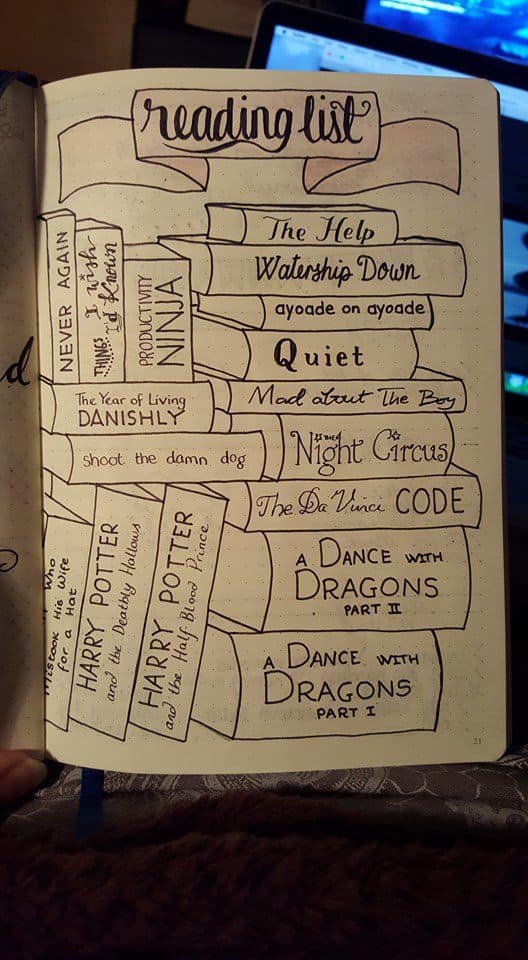 reading list
The Help
Watership Down
ayoade on ayoade
Quiet
Mad about The Boy
The Night Circus
The Da Vinci CODE
A DANCE WITH
DRAGONS
PART II
A DANCE WITH
DRAGONS
PART I
NEVER AGAIN
THINGS I wish
I'd Known
PRODUCTIVITY
NINJA
The Year of Living
DANISHLY
Shoot the damn dog
Who
Mistook His Wife
for a Hat
HARRY POTTER
and the Deathly Hallows
HARRY POTTER
and the Half-Blood Prince
d
21